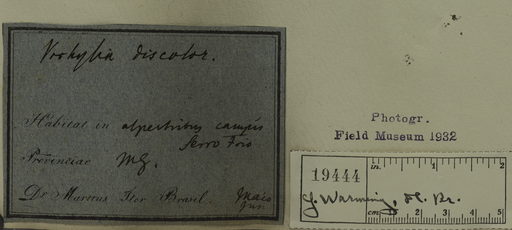 Vochysia discolor.
Habitat in alpestribus campis
Serro Frio
Provinciae M.G.
Dr. Martius Iter Brasil. Maio
Jun.
Photogr.
Field Museum 1932
19444
in. 1 2
J. Warming, Fl. Br.
cm. 1 2 3 4 5